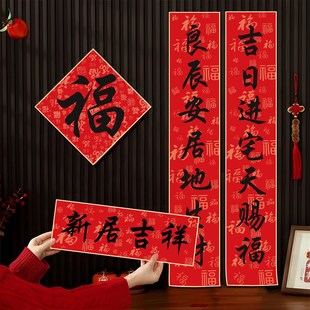 福
吉日进宅天赐福
良辰安居地
新居吉祥